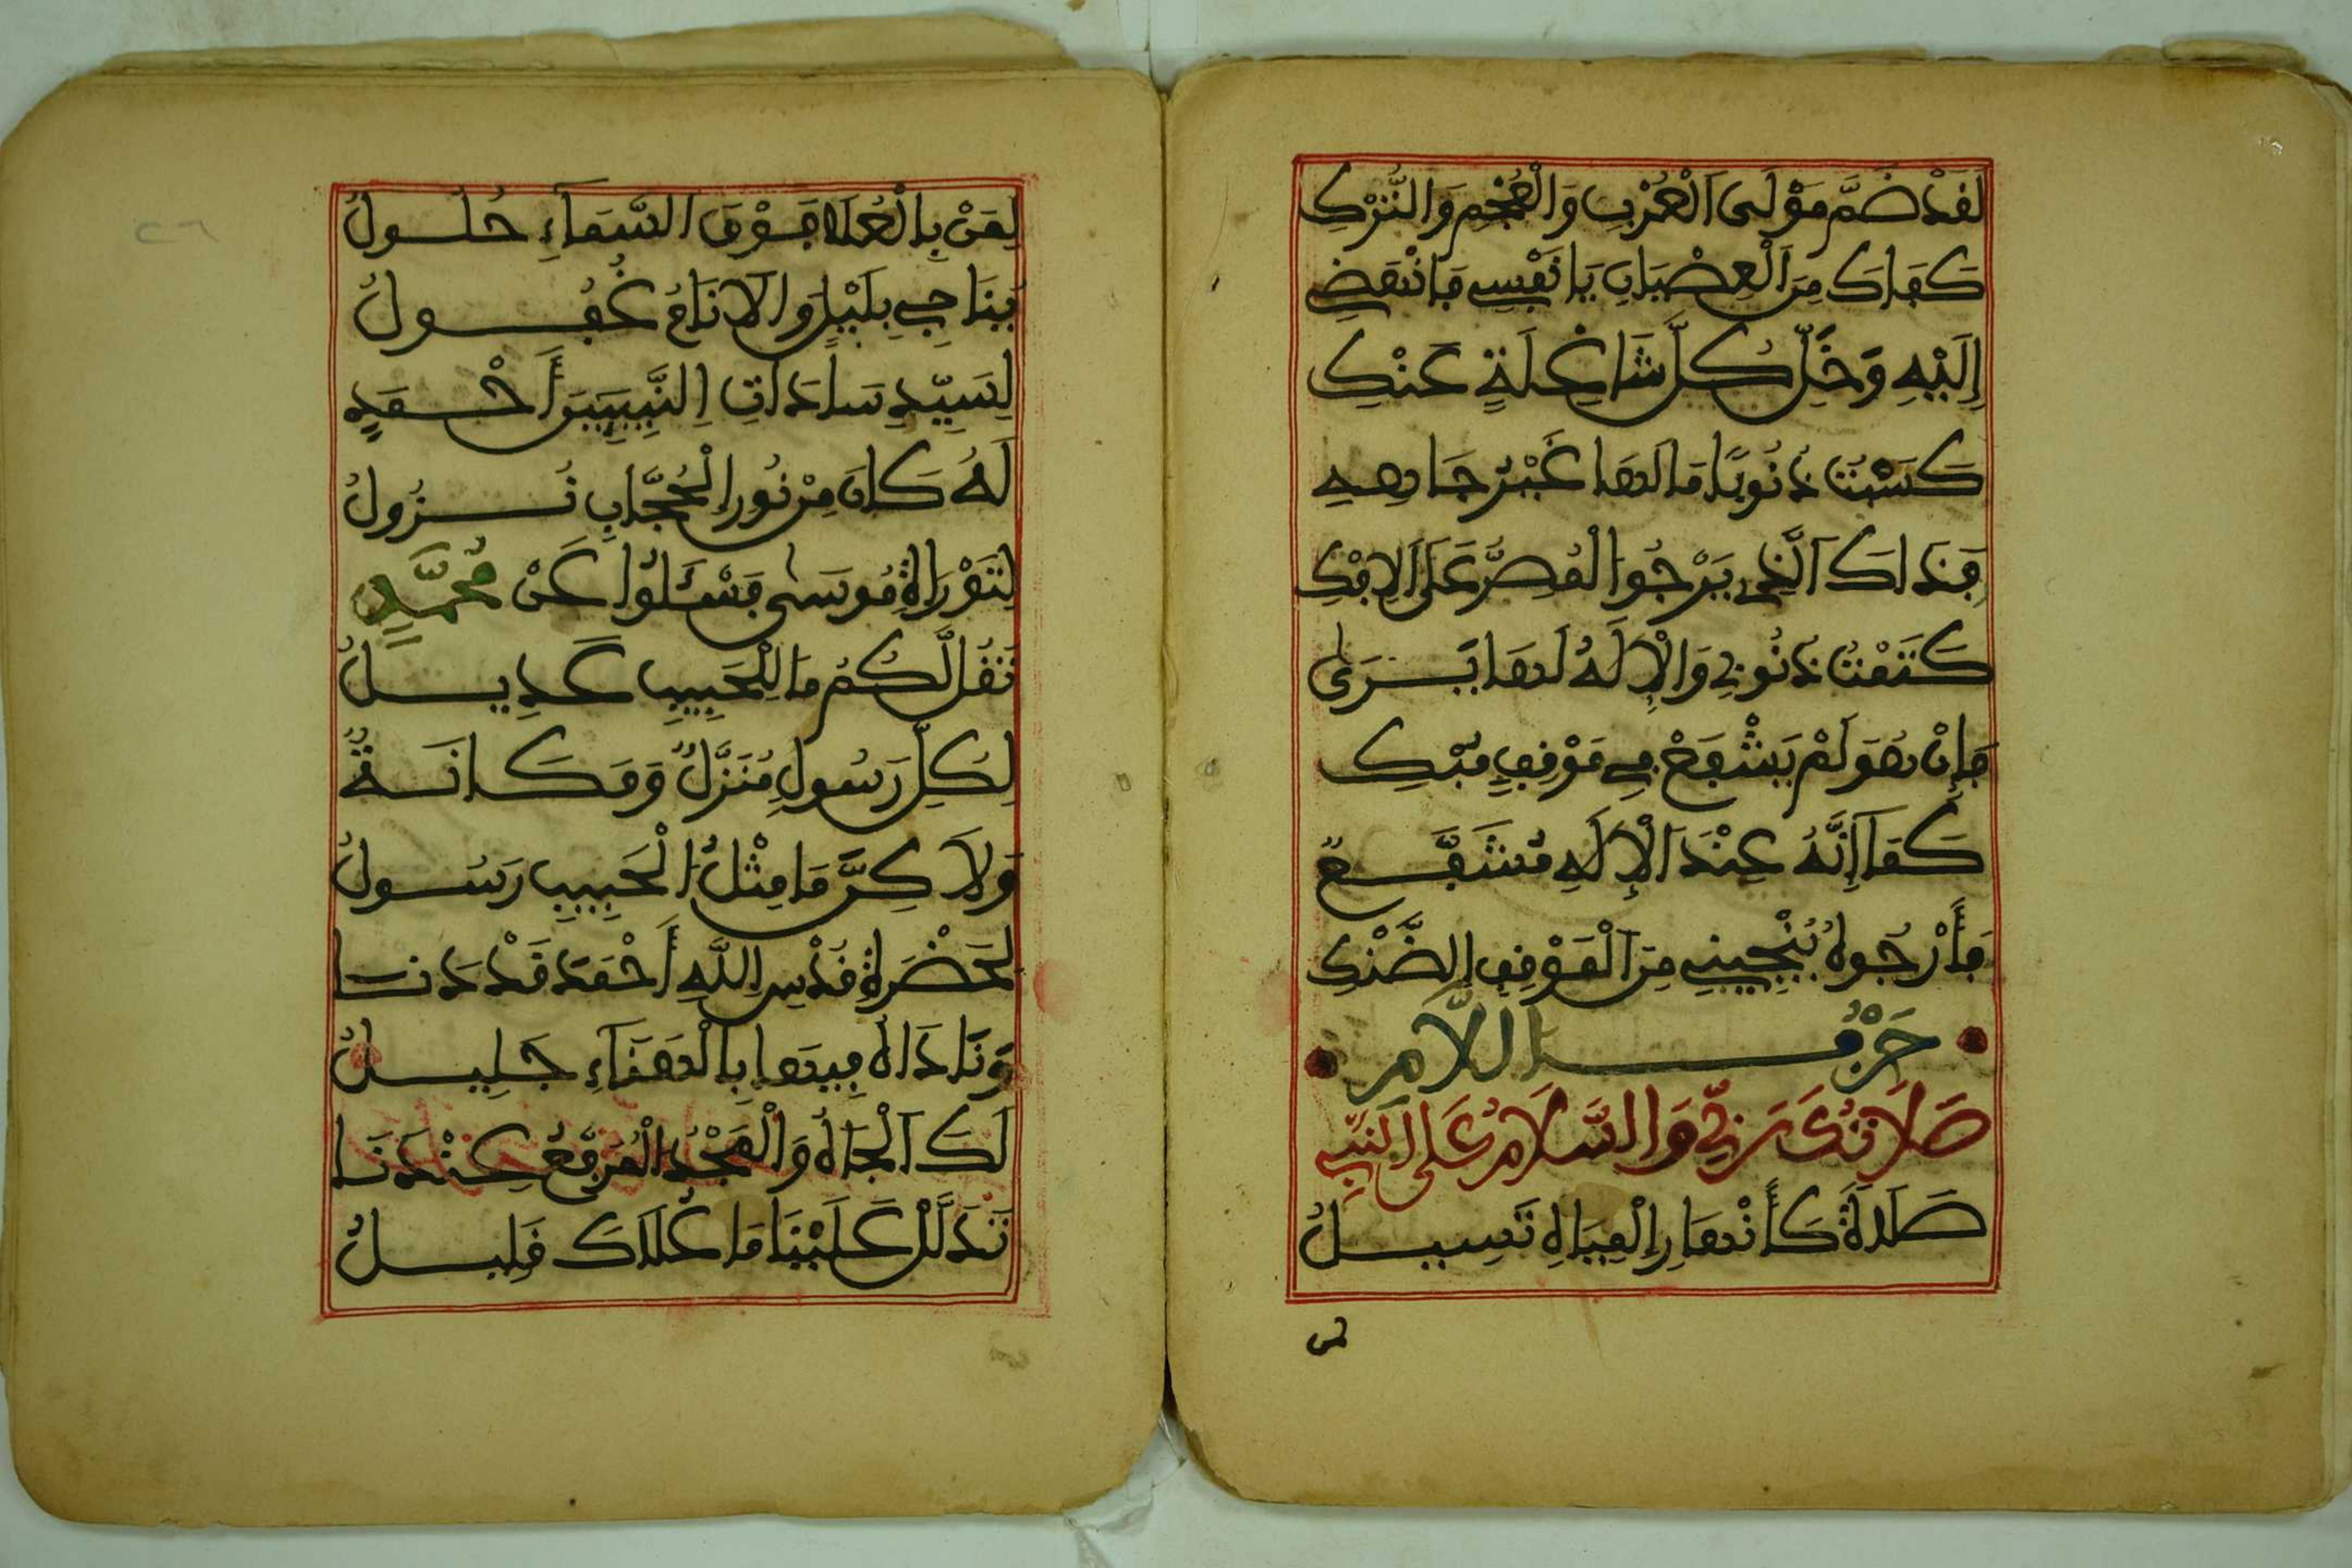 لَقَدْ ضَمَّ مَوْلَى الْعُرْبِ وَالْعُجْمِ وَالتُّرْكِ
كَفَاكَ مِنَ الْعِصْيَانِ يَا نَفْسِي فَانْهَضِي
إِلَيْهِ وَخَلِّ كُلَّ شَاغِلَةٍ عَنْكِ
كَسَبْتُ ذُنُوبًا مَا لَهَا غَيْرُ جَاهِهِ
فَذَاكَ الَّذِي يَرْجُوا الْمُصِرُّ عَلَى الْإِفْكِ
كَتَمْتُ ذُنُوبِي وَالْإِلَهُ لَهَا يَرَى
فَإِنْ هُوَ لَمْ يَشْفَعْ فِي مَوْقِفٍ مُبْكِ
كَمَا إِنَّهُ عِنْدَ الْإِلَهِ مُشَفَّعٌ
فَأَرْجُوهُ يُنْجِينِي مِنَ الْمَوْقِفِ الضَّنْكِ
حَرْفُ اللَّامِ
صَلَاتُكَ رَبِّي وَالسَّلَامُ عَلَى النَّبِي
صَلَاةً كَأَنْهَارِ الْمِيَاهِ تَسِيلُ
لمن
٢٦
لِمَنْ بِالْعُلَا فَوْقَ السَّمَاءِ حُلُولُ
يُنَاجِي بِلَيْلٍ وَالْأَنَامُ غُفُولُ
لِسَيِّدِ سَادَاتِ النَّبِيِّينَ أَحْمَدٍ
لَهُ كَانَ مِنْ نُورِ الْحُجَّابِ نُزُولُ
لِتَوْرَاةِ مُوسَى فَسْئَلُوا عَنْ مُحَمَّدٍ
تَقُل لَّكُمُ مَا لِلْحَبِيبِ عَدِيلُ
لِكُلِّ رَسُولٍ مُنَزَّلٌ وَمَكَانَةٌ
وَلَاكِنَّ مَا مِثْلُ الْحَبِيبِ رَسُولُ
لِحَضْرَةِ قُدْسِ اللَّهِ أَحْمَدَ قَدْ دَنَا
وَنَادَاهُ فِيهَا بِالْهَنَاءِ جَلِيلُ
لَكَ الْجَاهُ وَالْمَجْدُ الْمُرَفَّعُ عِنْدَنَا
تَدَلَّلْ عَلَيْنَا مَا عُلَاكَ قَلِيلُ